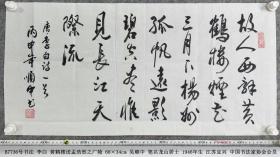 故人西辞黄
鹤楼烟花
三月下扬州
孤帆远影
碧空尽惟
见长江天
际流
唐李白诗一首
丙申年
87736号书法 李白 黄鹤楼送孟浩然之广陵 68×34cm 吴顺中 笔名龙山居士 1946年生 江苏宜兴 中国书法家协会会员